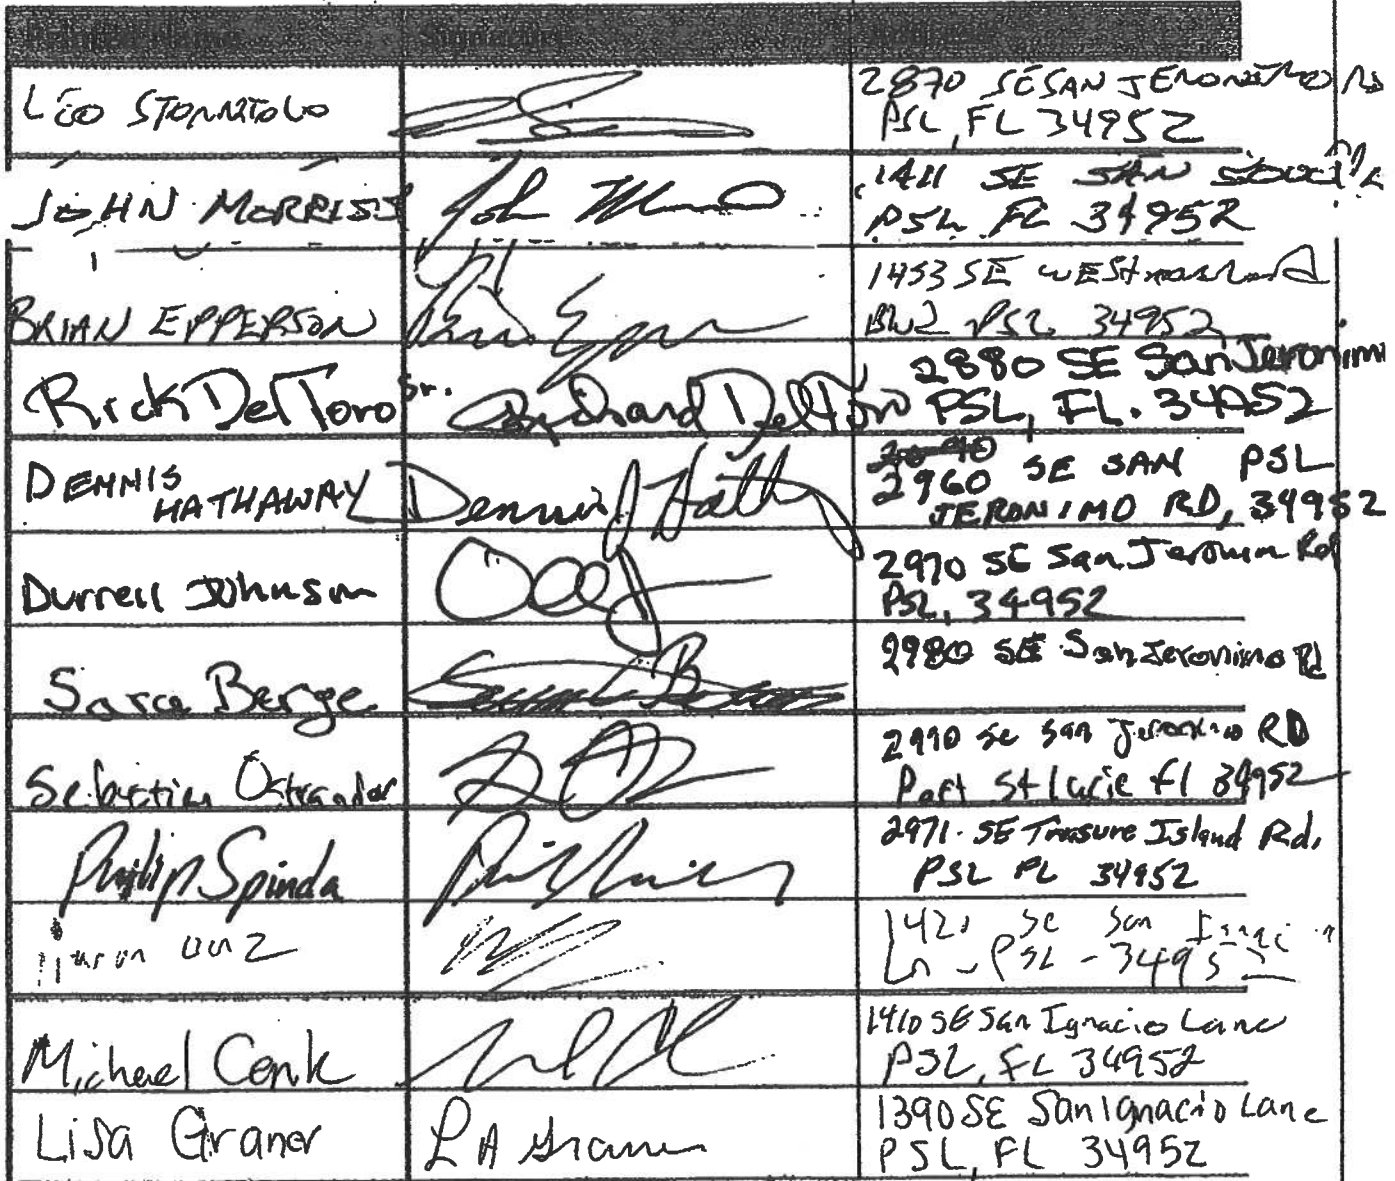 Printed Name Signature
LEO 2870 SE SAN JERONIMO RD
PSL, FL 34952
JOHN MORRISS John 1411 SE SAN
PSL FL 34952
BRIAN EPPERSON 1453 SE WESTmoreland
BLVD PSL 34952
Rick DelToro Sr. Richard DelToro 2880 SE San Jeronimo
PSL, FL. 34952
DENNIS HATHAWAY Dennis J Hathy 2960 SE SAN PSL
JERONIMO RD, 34952
Durrell Johnson 2970 SE San Jeronim Rd
PSL, 34952
Sara Berge 2980 SE San Jeronimo Rd
Sebastian Ostrander 2990 Se San Jeronimo RD
Port St Lucie fl 34952
Philip Spinda 2971 SE Treasure Island Rd.
PSL FL 34952
Se San
Ln - PSL - 34952
Michael Cenk 1410 SE San Ignacio Lane
PSL, FL 34952
Lisa Graner L A Graner 1390 SE San Ignacio Lane
PSL, FL 34952